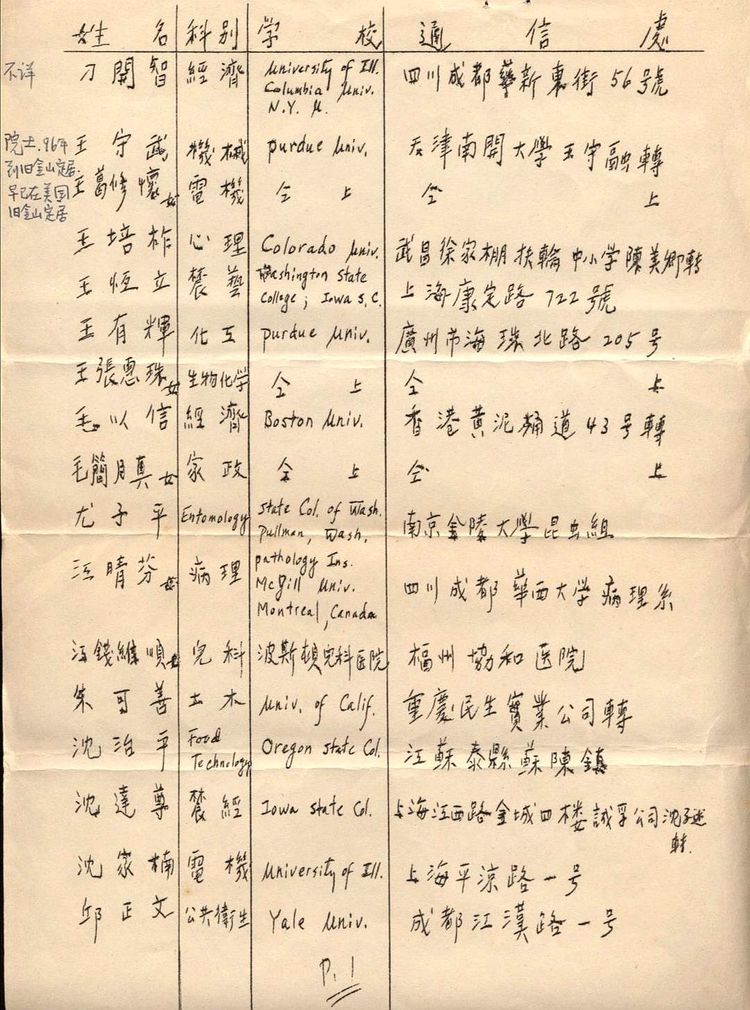 姓名 科别 学校 通信處
不详 刁開智 經濟 University of Ill. 四川成都華新東街56號
Columbia Univ.
N.Y. U.
院士.96年 王守武 機械 purdue Univ. 天津南開大學王守融轉
到旧金山定居.
王葛修懷女 電機 仝上 仝上
早已在美国
旧金山定居
王培柞 心理 Colorado Univ. 武昌徐家棚扶輪中小学陳美卿轉
王恆立 農藝 Washington State 上海康定路722號
College; Iowa S.C.
王有輝 化工 purdue Univ. 廣州市海珠北路205号
王張惠珠女 生物化学 仝上 仝上
毛以信 經濟 Boston Univ. 香港黄泥涌道43号轉
毛簡月真女 家政 仝上 仝上
尤子平 Entomology State Col. of Wash. 南京金陵大學昆虫組
Pullman, Wash.
江晴芬女 病理 pathology Ins. 四川成都華西大学病理系
McGill Univ.
Montreal, Canada
江錢維順女 兒科 波斯頓兒科医院 福州協和医院
朱可善 土木 Univ. of Calif. 重慶民生實業公司轉
沈治平 Food Oregon State Col. 江蘇泰縣蘇陳鎮
Technology
沈達尊 農經 Iowa State Col. 上海江西路金城四楼誠孚公司沈子述
轉.
沈家楠 電機 University of Ill. 上海平涼路一号
邱正文 公共衛生 Yale Univ. 成都江漢路一号
P. 1